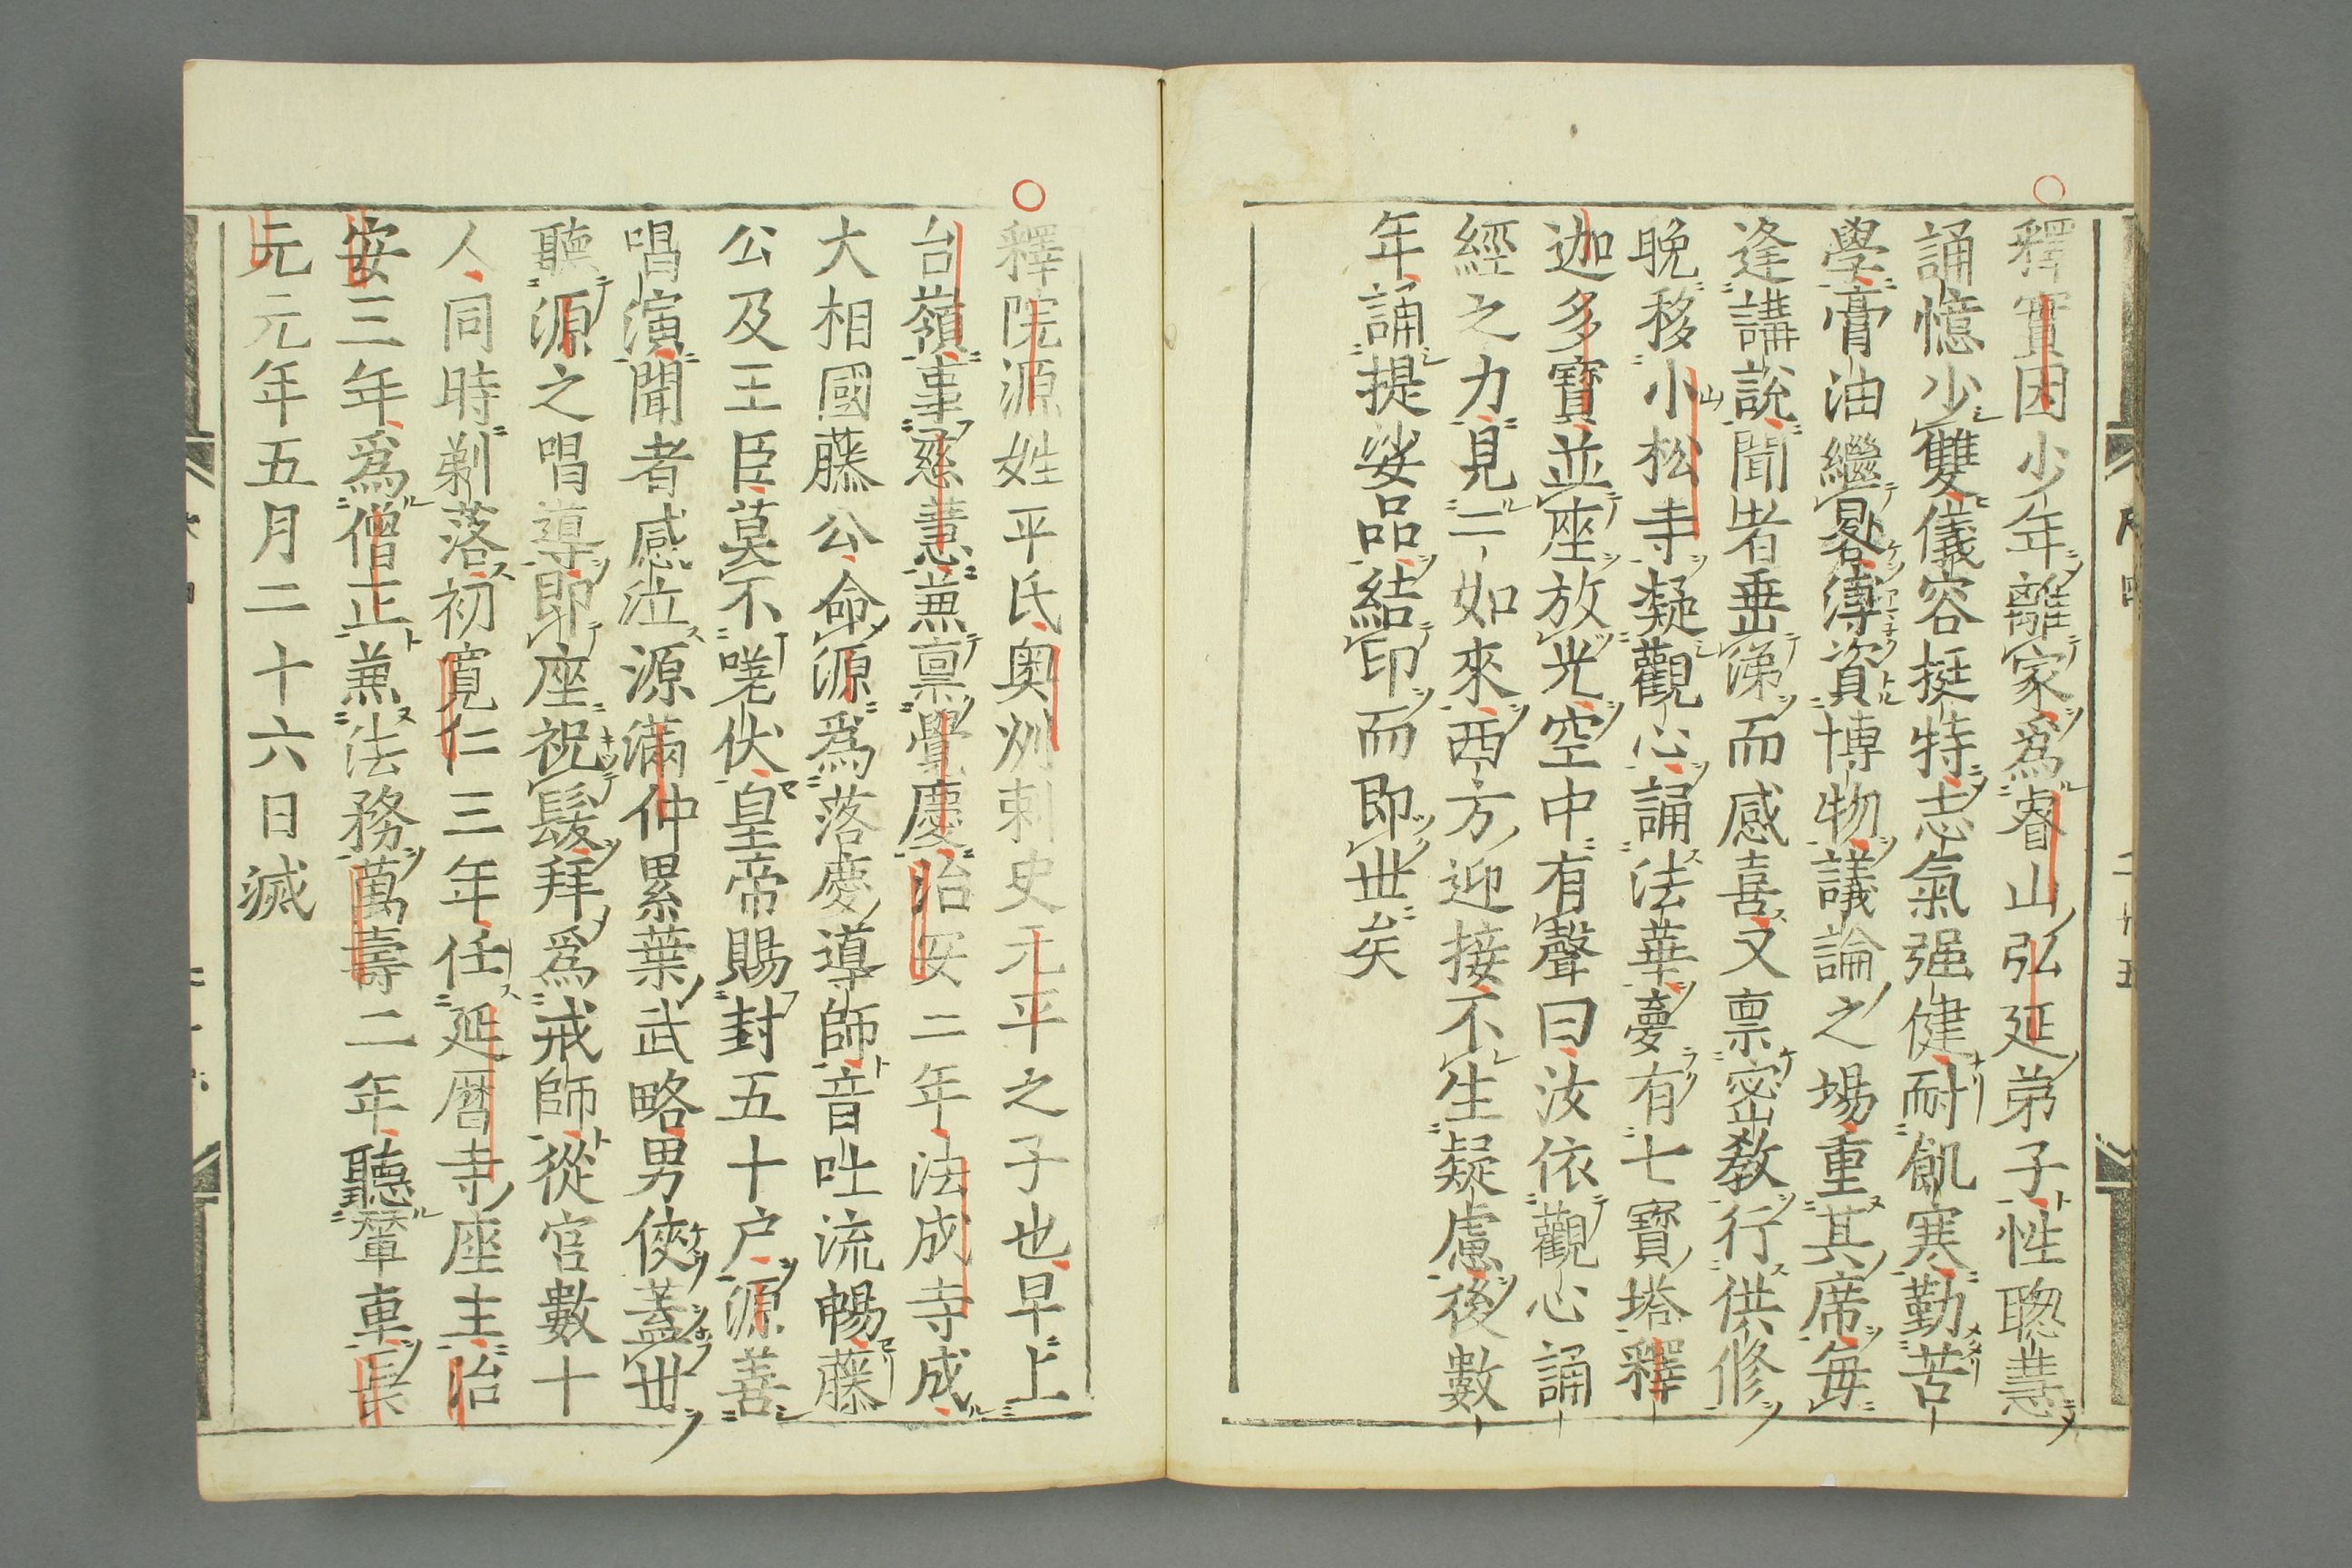 釋實因少年離家爲睿山弘延弟子性聰慧
誦憶少雙儀容挺特志氣强健耐飢寒勤苦
學膏油繼晷溥資博物議論之場重其席每
逢講說聞者垂涕而感喜又禀密教行供修
晚移小松寺凝觀心誦法華夢有七寶塔釋
迦多寶並座放光空中有聲曰汝依觀心誦
經之力見二如來西方迎接不生疑慮後數
年誦提婆品結印而即世矣
釋院源姓平氏奧州刺史元平之子也早上
台嶺事慈慧兼禀覺慶治安二年法成寺成
大相國藤公命源爲落慶導師音吐流暢藤
公及王臣莫不嘆伏皇帝賜封五十户源善
唱演聞者感泣源滿仲累葉武略男俠蓋世
聽源之唱導即座祝髮拜爲戒師從官數十
人同時剃落初寬仁三年任延曆寺座主治
安三年爲僧正兼法務萬壽二年聽輦車長
元元年五月二十六日滅